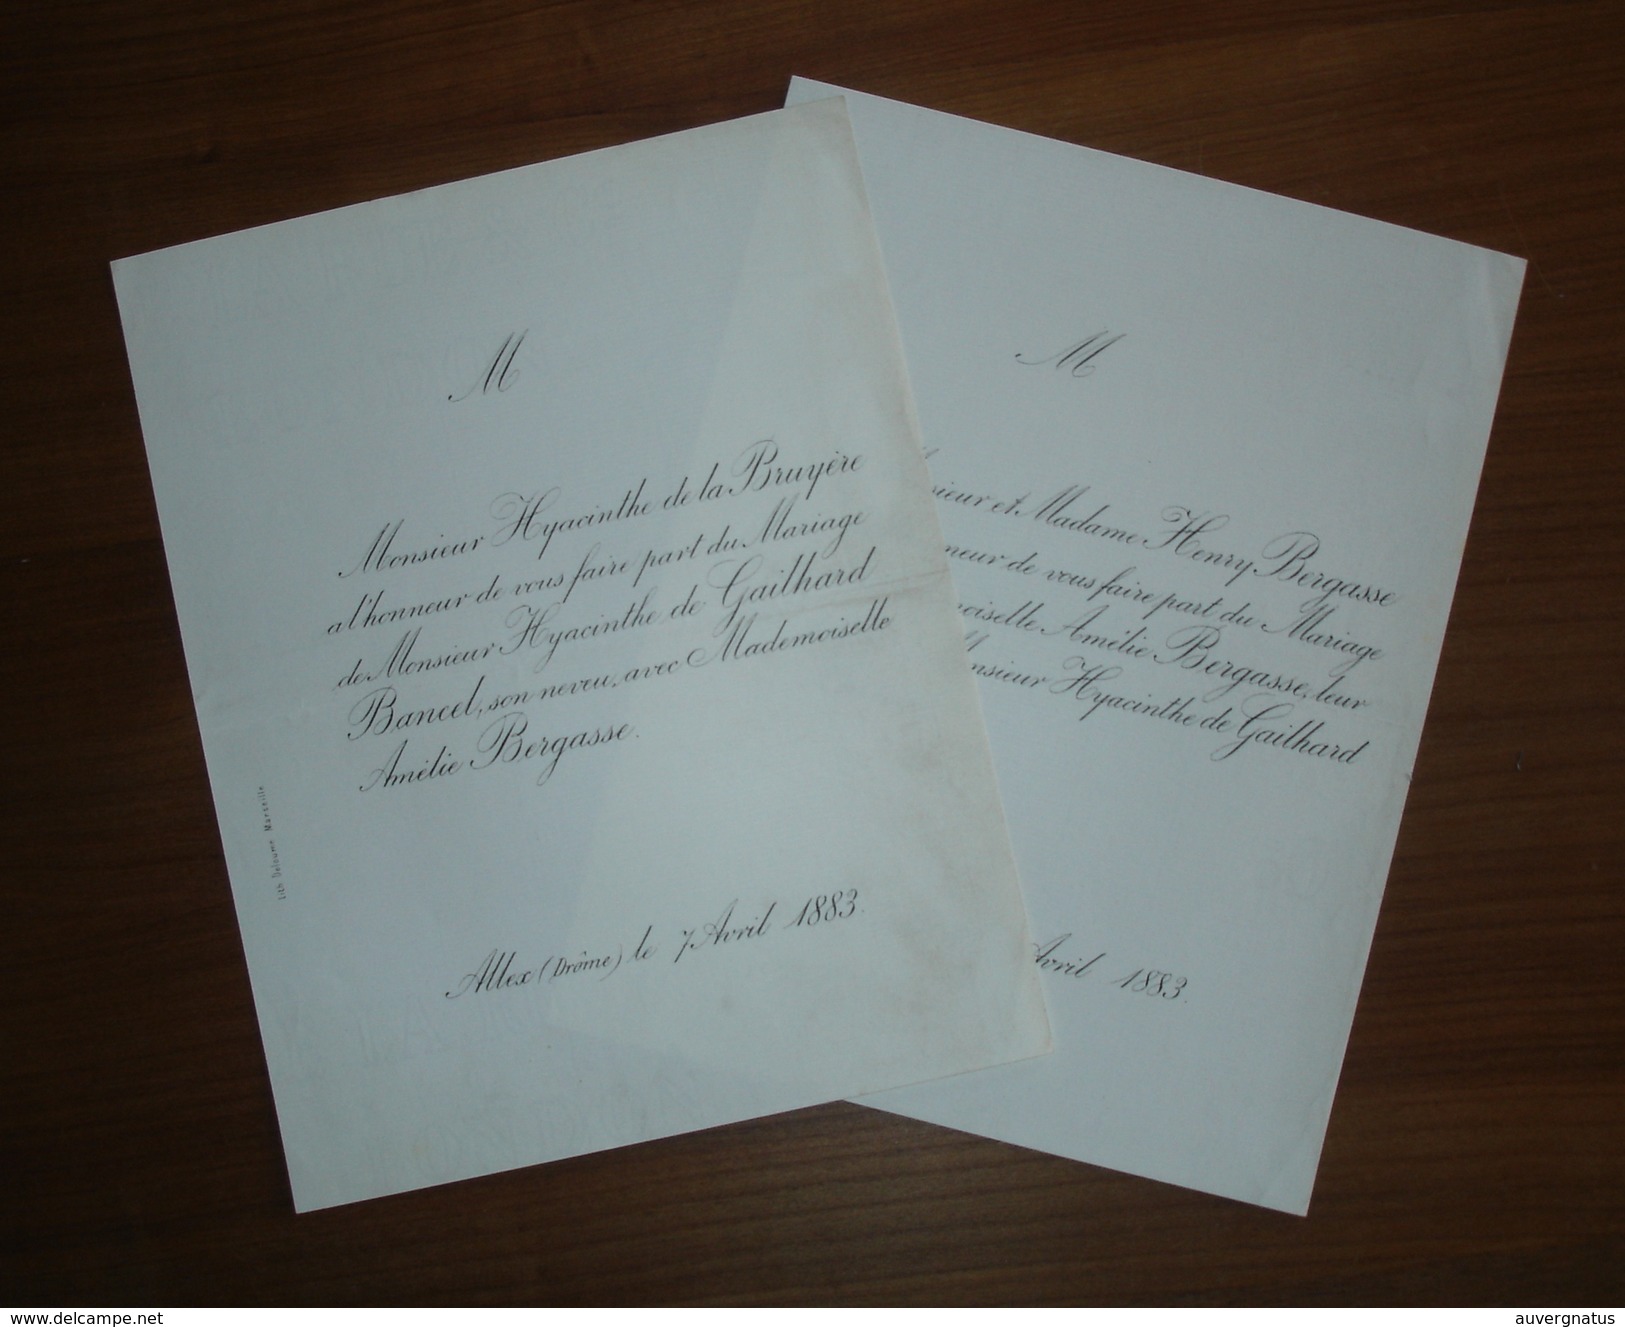 M
Monsieur Hyacinthe de la Bruyère
a l'honneur de vous faire part du Mariage
de Monsieur Hyacinthe de Gailhard
Bancel, son neveu, avec Mademoiselle
Amélie Bergasse.
Allex (Drôme) le 7 Avril 1883.
Lith Deleume Marseille
M
sieur et Madame Henry Bergasse
neur de vous faire part du Mariage
oiselle Amélie Bergasse, leur
nsieur Hyacinthe de Gailhard
Avril 1883.
delcampe.net
auvergnatus